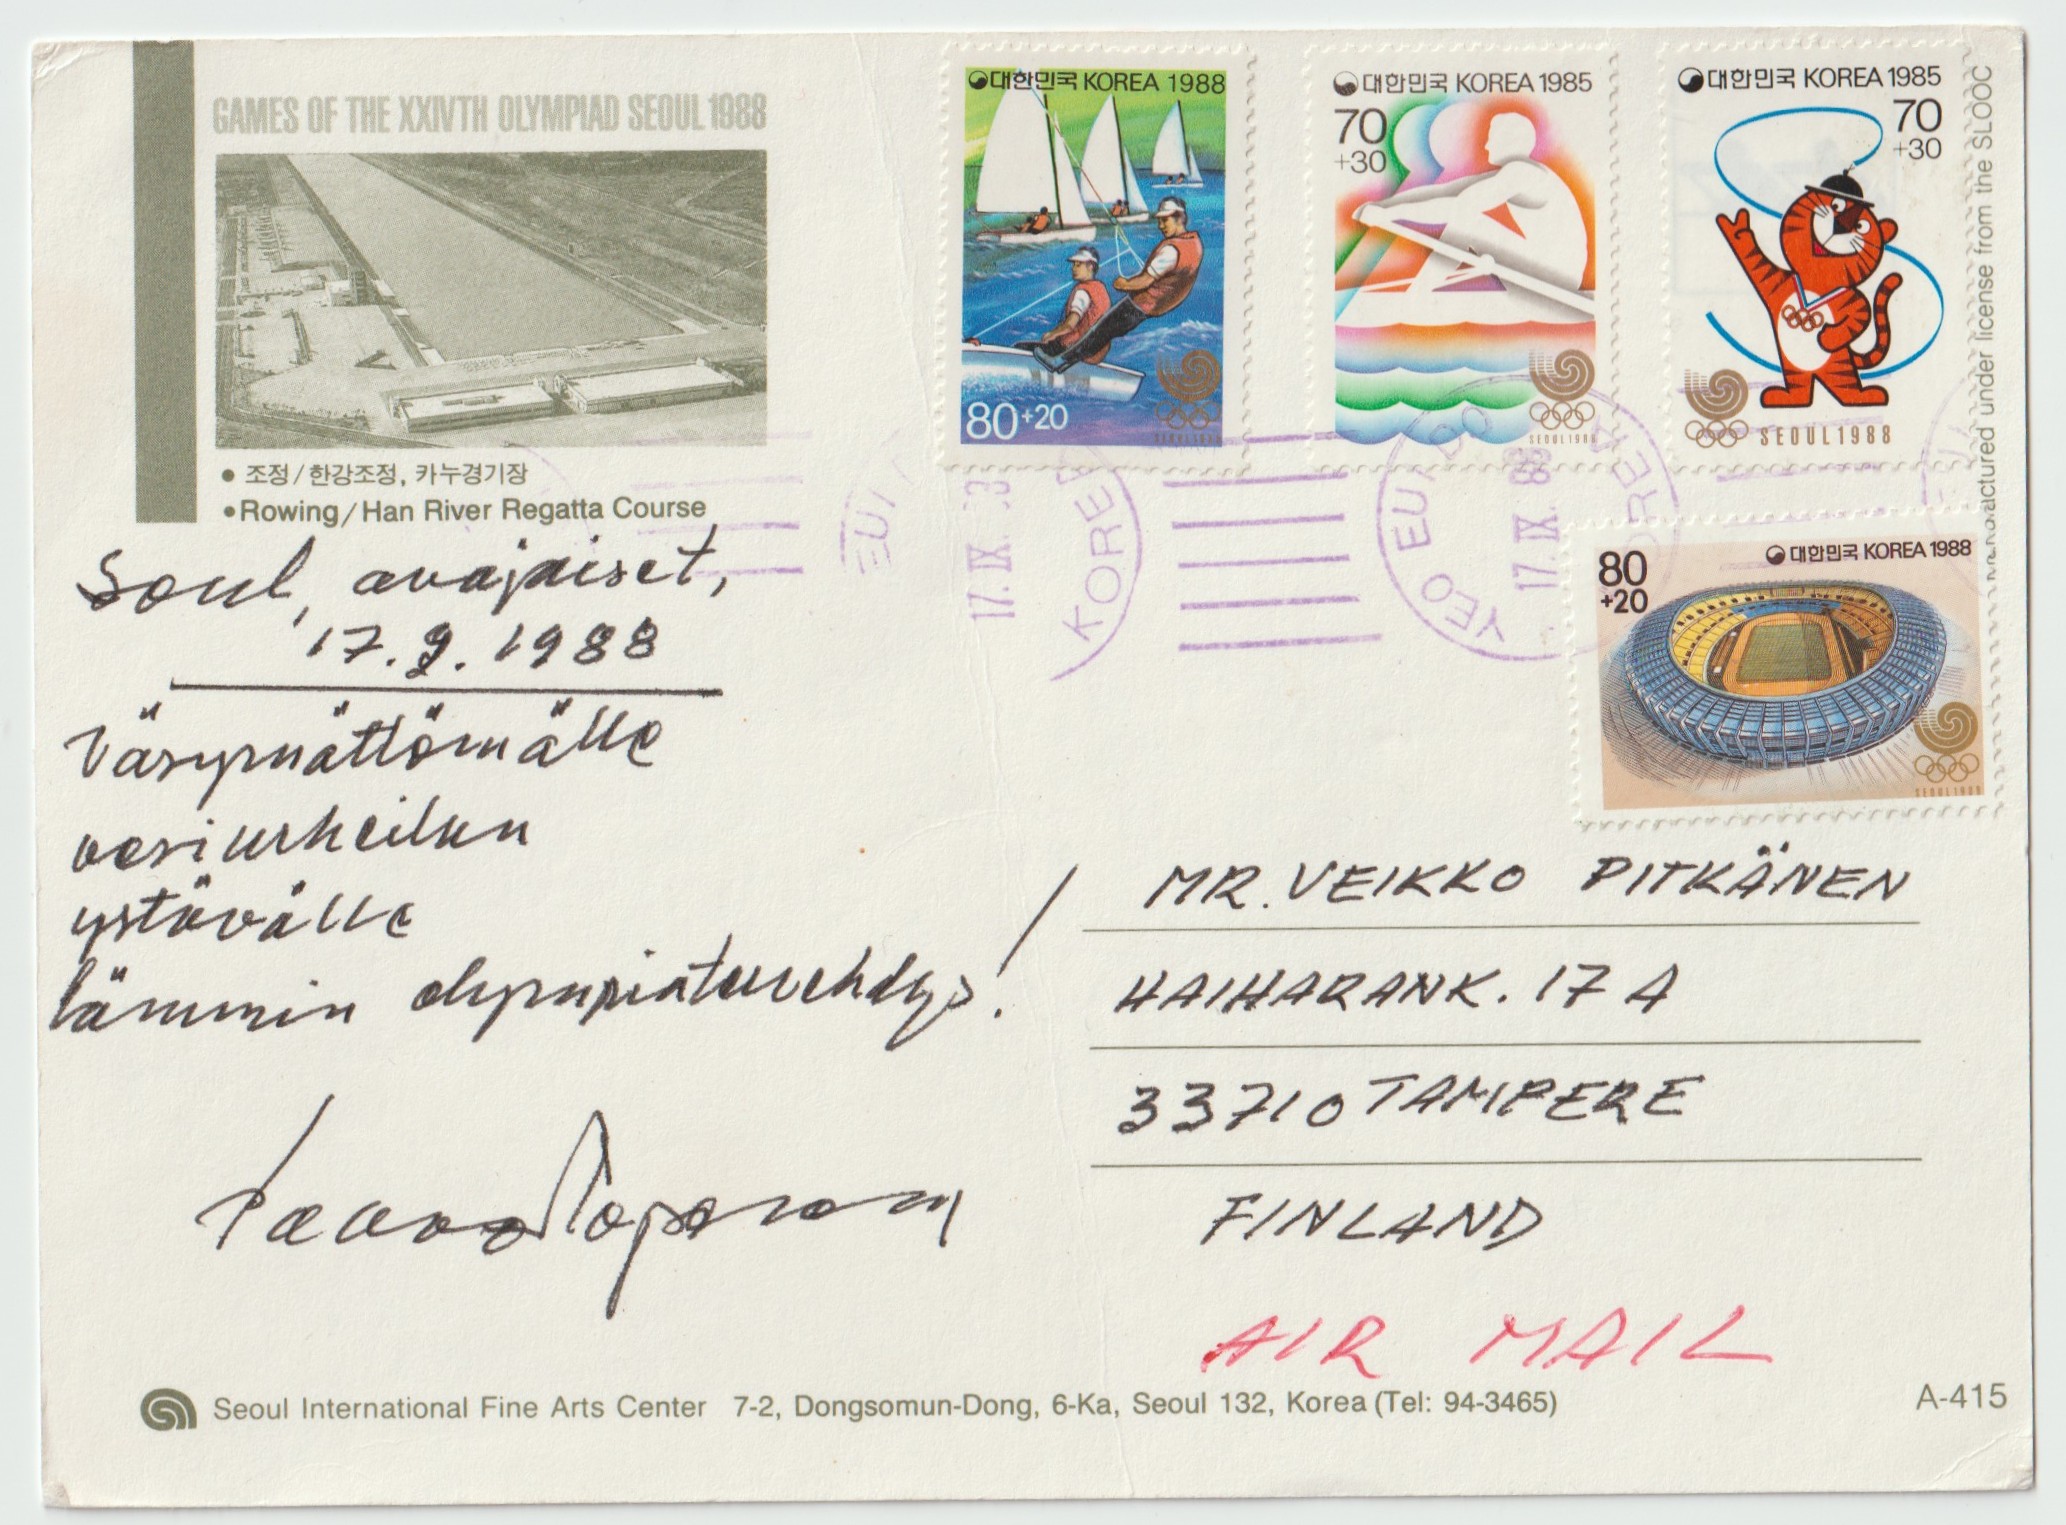 GAMES OF THE XXIVTH OLYMPIAD SEOUL 1988
• 조정/한강조정, 카누경기장
• Rowing/Han River Regatta Course
Soul, avajaiset,
17.9.1988
Väsymättömälle
vesiurheilun
ystävälle
lämmin olympiatervehdys!
Seoul International Fine Arts Center 7-2, Dongsomun-Dong, 6-Ka, Seoul 132, Korea (Tel: 94-3465)
A-415
대한민국 KOREA 1988
80+20
SEOUL1988
대한민국 KOREA 1985
70
+30
SEOUL1988
대한민국 KOREA 1985
70
+30
SEOUL1988
대한민국 KOREA 1988
80
+20
SEOUL1988
17. IX.
KOREA
YEO EUI DO
17. IX. 88
KOREA
Manufactured under license from the SLOOC
MR. VEIKKO PITKÄNEN
HAIHARANK. 17 A
33710 TAMPERE
FINLAND
AIR MAIL